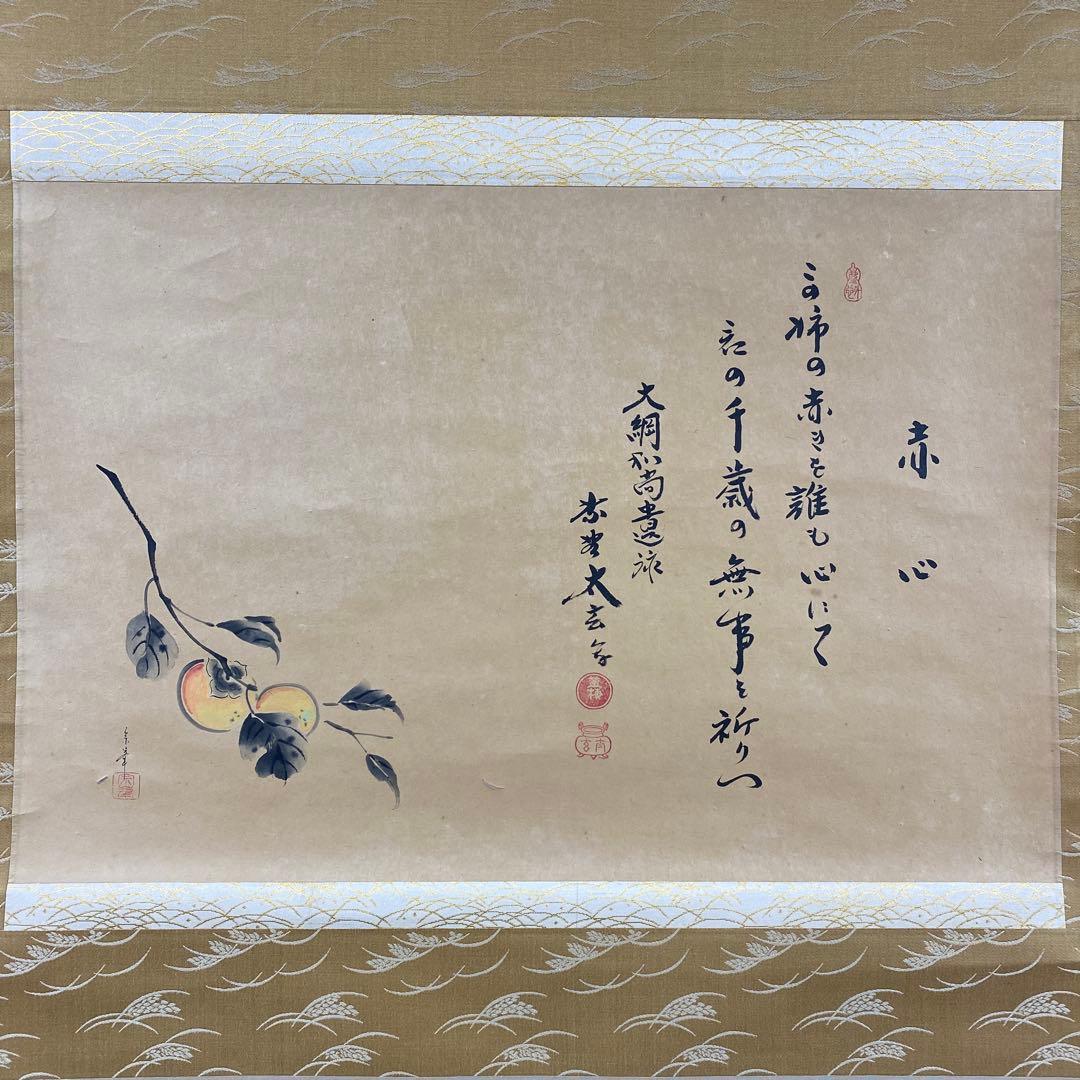 赤心
この柿の赤きを誰も心にて
の千歳の無事を祈りつ
大綱和尚遺詠
紫野太玄